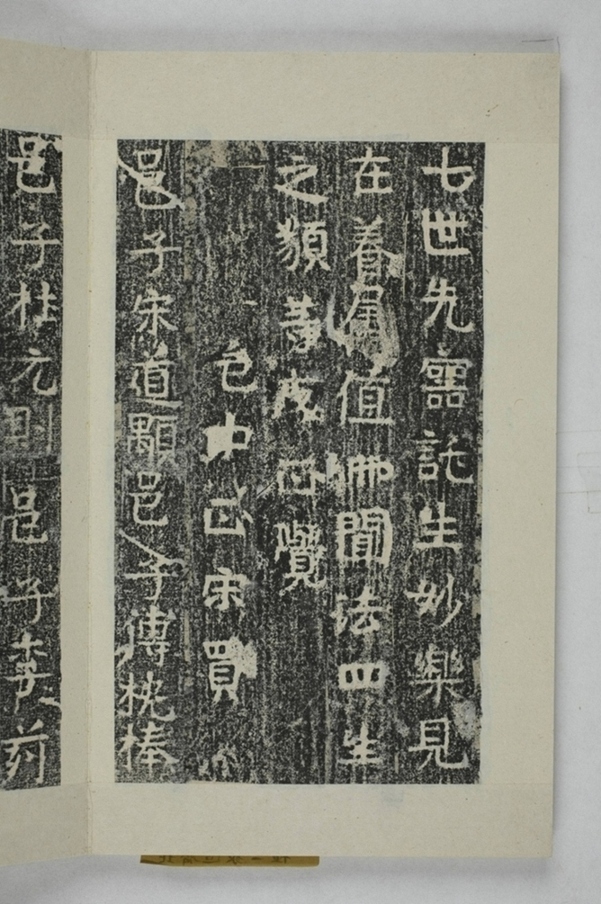 七世先靈託生妙樂見
在眷屬值佛聞法四生
之類等成正覺
邑中正宋買
邑子宋道顯邑子傅桄棒
邑子杜元則邑子李